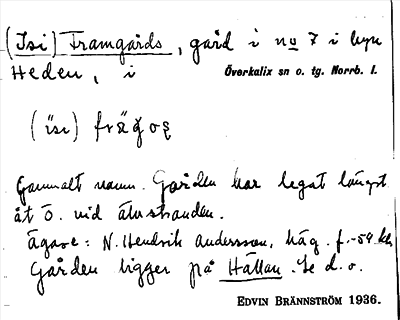 (Isi) Framgårds, gård i no 7 i byn
Heden, i Överkalix sn o. tg. Norrb. l.
(isi)
Gammalt namn. Gården har legat längst
åt Ö. vid älvstranden.
Ägare: N. Hendrik Andersson, häg. f.-54
Gården ligger på Hällan. Se d.o.
EDVIN BRÄNNSTRÖM 1936.